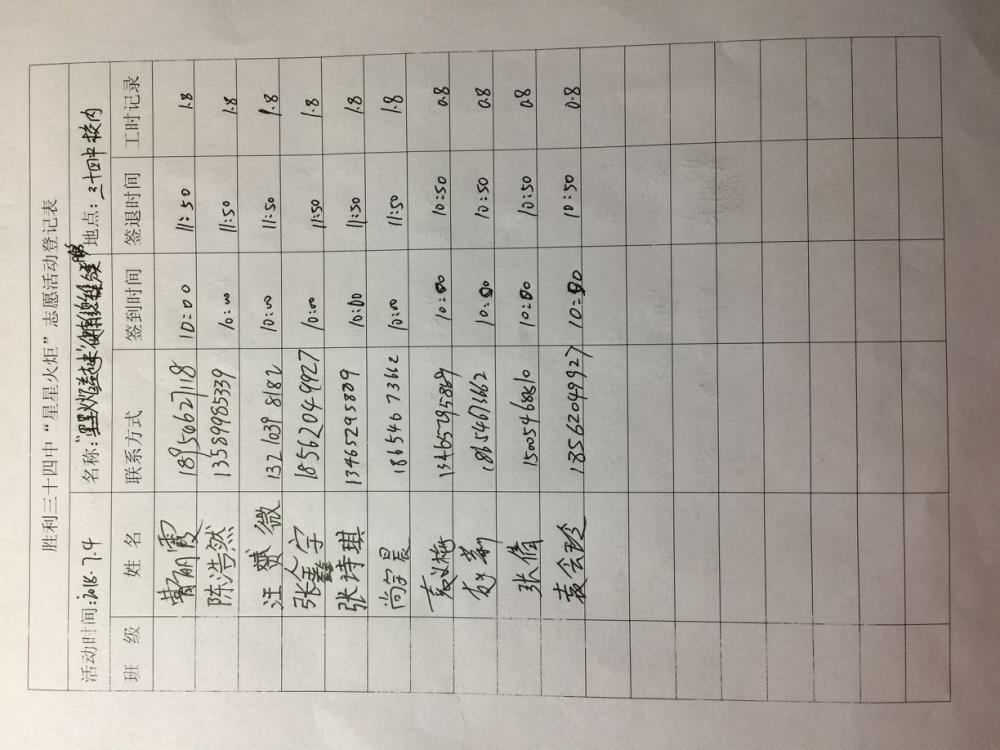 胜利三十四中“星星火炬”志愿活动登记表
活动时间:2018.7.4 名称: 地点:三十四中校内
班 级 姓 名 联系方式 签到时间 签退时间 工时记录
曹丽霞 18950627118 10:00 11:50 1.8
陈浩然 13589985339 10:00 11:50 1.8
汪 赟 微 132 1039 8182 10:00 11:50 1.8
张鑫宇 18562049927 10:00 11:50 1.8
张诗琪 13465295809 10:00 11:50 1.8
尚宇晨 18654673662 10:00 11:50 1.8
13465295869 10:00 10:50 0.8
18654673662 10:00 10:50 0.8
张倩 15005468810 10:00 10:50 0.8
袁会珍 18562049927 10:00 10:50 0.8